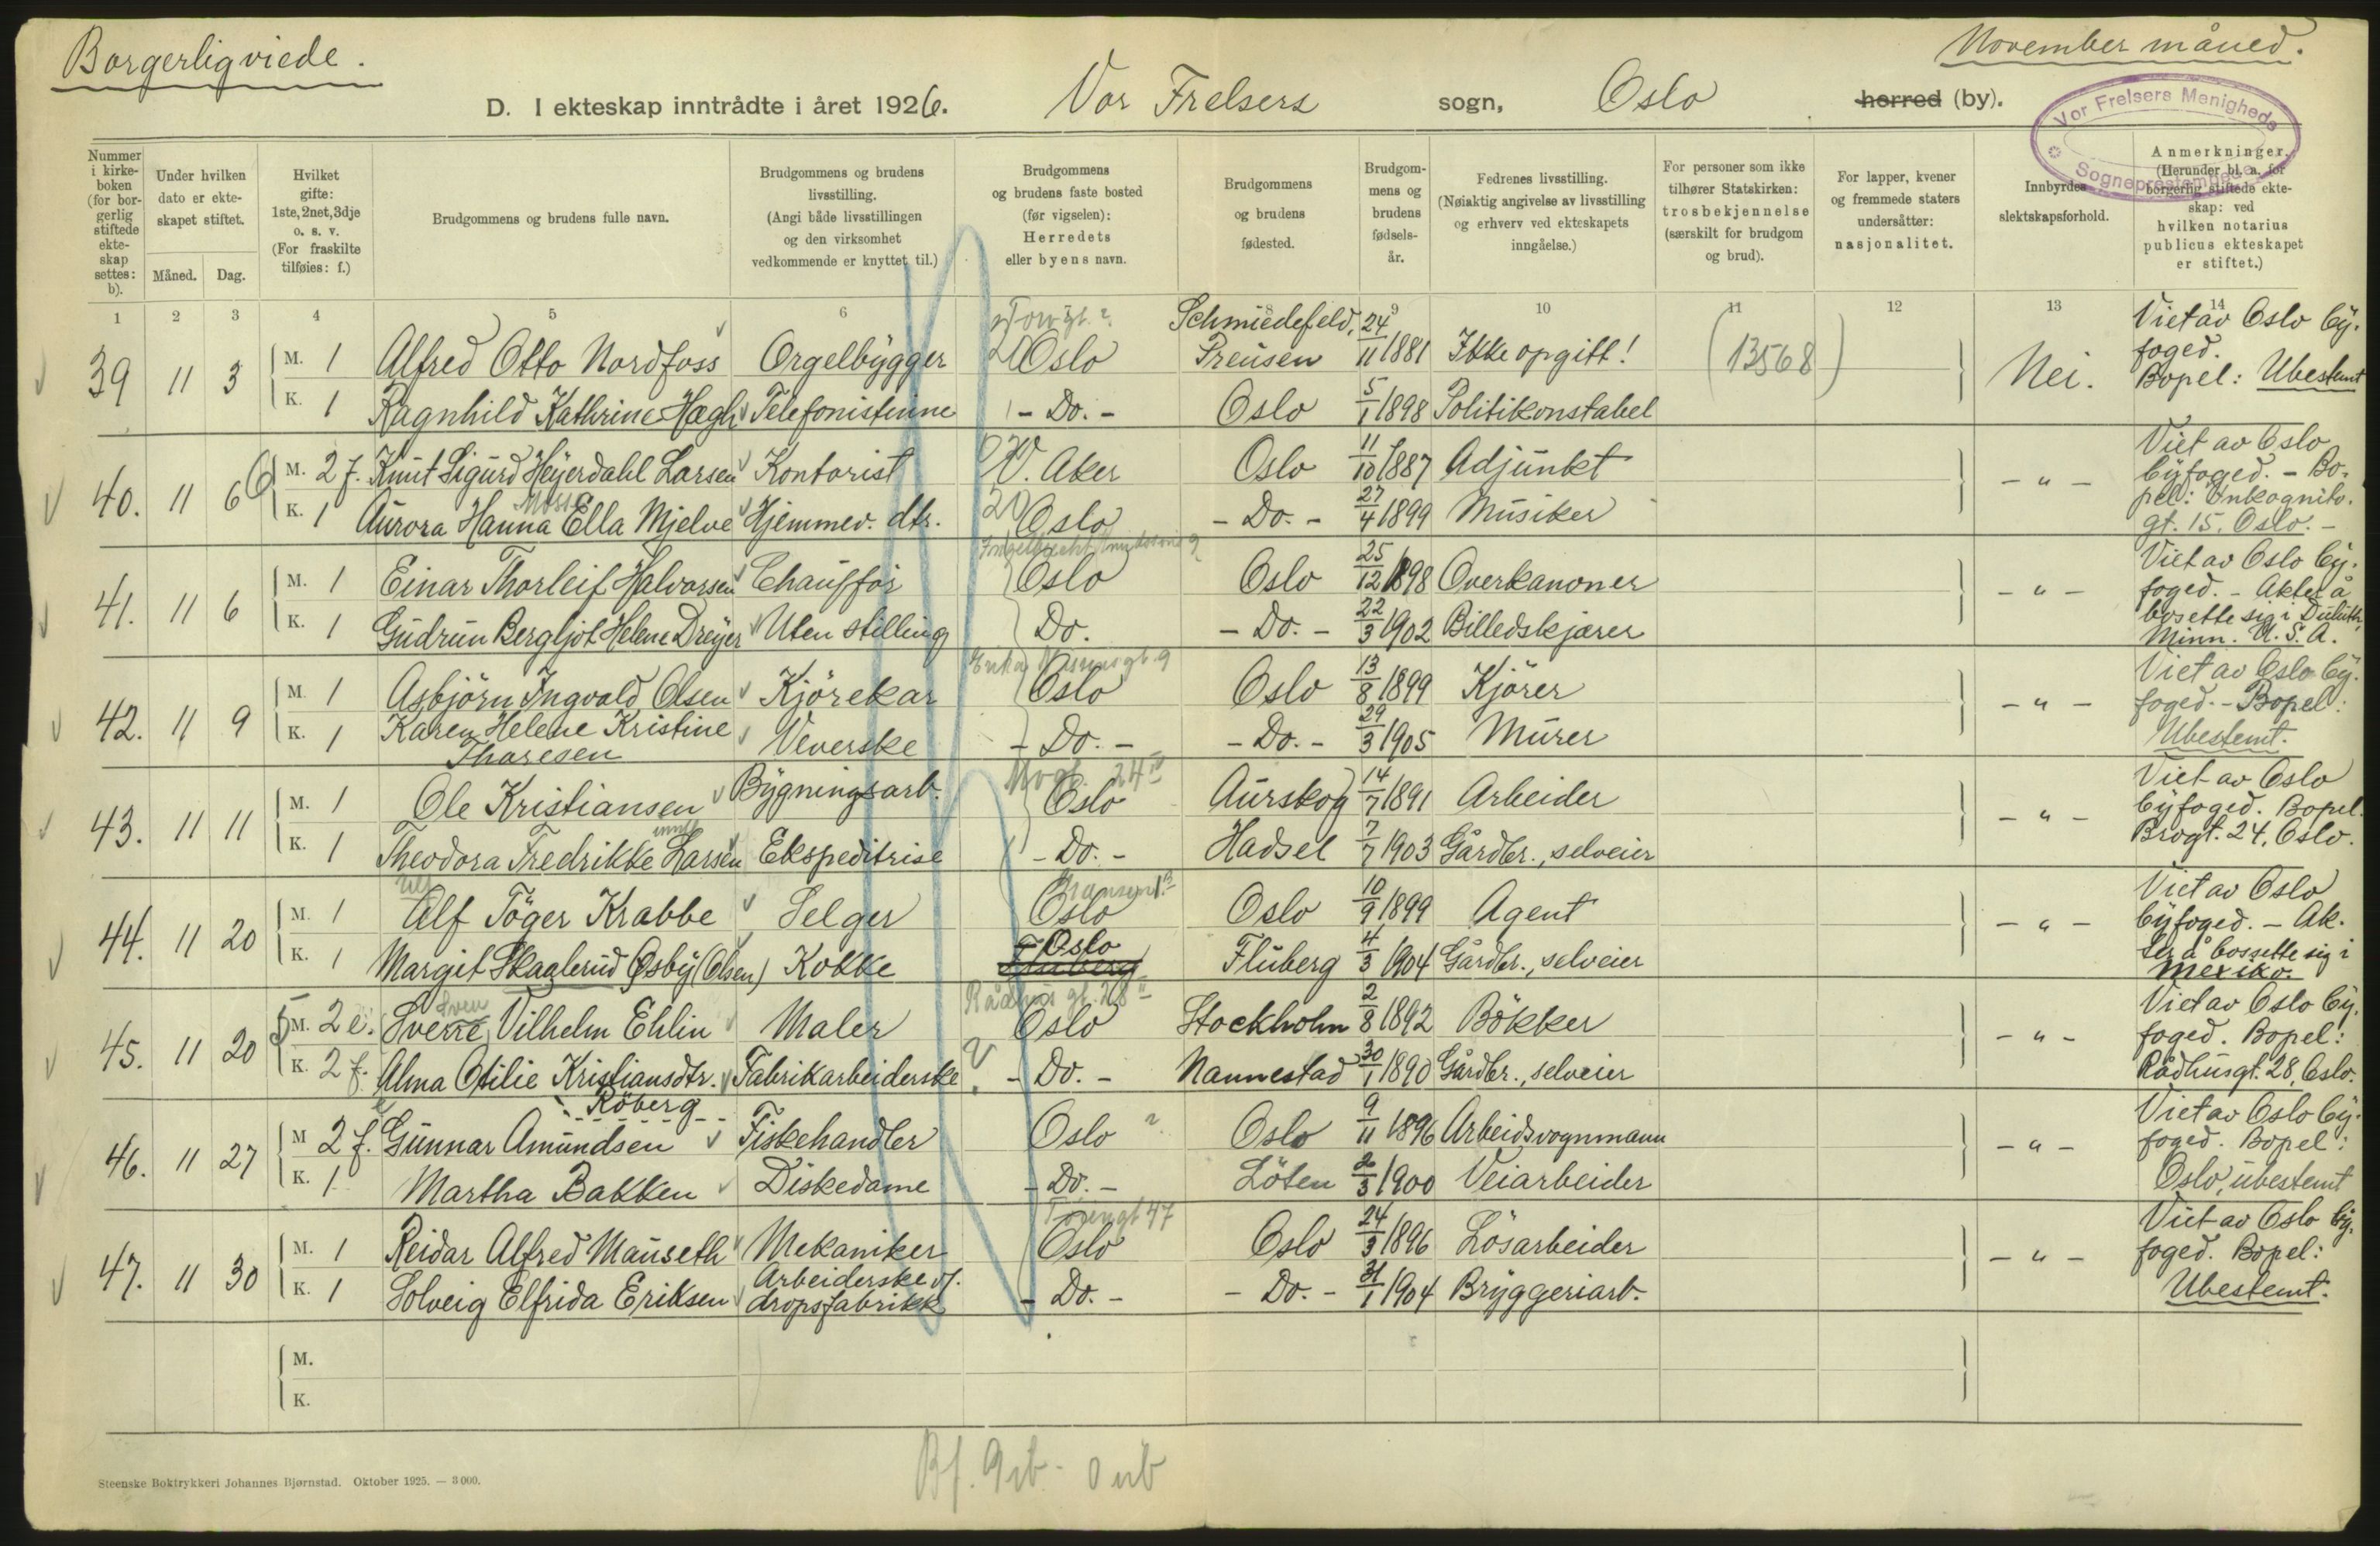 Borgerlig viede.
November måned.
D. I ekteskap inntrådte i året 1926. Vor Frelsers sogn, Oslo herred (by).
Vor Frelsers Menigheds
Sogneprestembede
Nummer i kirkeboken (for borgerlig stiftede ekteskap settes: b).
Under hvilken dato er ekteskapet stiftet.
Måned. Dag.
Hvilket gifte: 1ste, 2net, 3dje o. s. v. (For fraskilte tilføies: f.)
Brudgommens og brudens fulle navn.
Brudgommens og brudens livsstilling. (Angi både livsstillingen og den virksomhet vedkommende er knyttet til.)
Brudgommens og brudens faste bosted (før vigselen): Herredets eller byens navn.
Brudgommens og brudens fødested.
Brudgommens og brudens fødselsår.
Fedrenes livsstilling. (Nøiaktig angivelse av livsstilling og erhverv ved ekteskapets inngåelse.)
For personer som ikke tilhører Statskirken: trosbekjennelse (særskilt for brudgom og brud).
For lapper, kvener og fremmede staters undersåtter: nasjonalitet.
Innbyrdes slektskapsforhold.
Anmerkninger. (Herunder bl. a. for borgerlig stiftede ekteskap: ved hvilken notarius publicus ekteskapet er stiftet.)
1 2 3 4 5 6 8 9 10 11 12 13 14
39 11 3 M. 1 Alfred Otto Nordfoss Orgelbygger Oslo Schmiedefeld, Preusen 24/11 1881 Ikke opgitt! (13568) Nei. Viet av Oslo byfoged. Bopel: Ubestemt
K. 1 Ragnhild Kathrine Hægh Telefonistinne - Do. - Oslo 5/1 1898 Politikonstabel
40. 11 6 M. 2 f. Knut Sigurd Heyerdahl Larsen Kontorist V. Aker Oslo 11/10 1887 Adjunkt - " - Viet av Oslo byfoged. - Bopel: Inkognitogt. 15. Oslo. -
K. 1 Aurora Hanna Ella Mjelve Hjemmev. dtr. 20 Oslo - Do. - 27/4 1899 Musiker
41. 11 6 M. 1 Einar Thorleif Halvorsen Chauffør Oslo Oslo 25/12 1898 Overkanoner - " - Viet av Oslo byfoged. - Akter å bosette sig i Duluth, Minn. U.S.A.
K. 1 Gudrun Bergljot Helene Dreyer Uten stilling Do. - Do. - 22/3 1902 Billedskjærer
42. 11 9 M. 1 Asbjörn Ingvald Olsen Kjörekar Oslo Oslo 13/8 1899 Kjörer - " - Viet av Oslo byfoged. - Bopel: Ubestemt.
K. 1 Karen Helene Kristine Thoresen Veverske - Do. - - Do. - 29/3 1905 Murer
43. 11 11 M. 1 Ole Kristiansen Bygningsarb. Oslo Aurskog 14/7 1891 Arbeider - " - Viet av Oslo byfoged. Bopel. Brogt. 24, Oslo.
K. 1 Theodora Fredrikke Larsen Ekspeditrise - Do. - Hadsel 7/7 1903 Gårdbr., selveier
44. 11 20 M. 1 Alf Töger Krabbe Selger Oslo Oslo 10/9 1899 Agent - " - Viet av Oslo byfoged. - Akter å bossette sig i Mexiko.
K. 1 Margit Skaglerud Øsby (Olsen) Kokke Oslo Fluberg Fluberg 4/3 1904 Gårdbr., selveier
45. 11 20 M. 2 e. Sverre Sven Vilhelm Ehlin Maler Rådhusgt. 28 Oslo Stockholm 2/8 1892 Bökker - " - Viet av Oslo byfoged. Bopel: Rådhusgt. 28, Oslo.
K. 2 f. Alma Otilie Kristiansdtr. Röberg Fabrikarbeiderske - Do. - Nannestad 30/1 1890 Gårdbr., selveier
46. 11 27 M 2 f. Gunnar Amundsen Fiskehandler Oslo ? Oslo 9/11 1896 Arbeidsvognmann - " - Viet av Oslo byfoged. Bopel: Oslo, ubestemt
K. 1 Martha Bakken Diskedame - Do. - Löten 2/3 1900 Veiarbeider
47. 11 30 M. 1 Reidar Alfred Mauseth Mekaniker Oslo Oslo 24/3 1896 Lösarbeider - " - Viet av Oslo byfoged. Bopel: Ubestemt.
K. 1 Solveig Elfrida Eriksen Arbeiderske v/. dropsfabrikk - Do. - - Do. - 31/1 1904 Bryggeriarb.
M.
K.
Steenske Boktrykkeri Johannes Bjørnstad. Oktober 1925. — 3000.